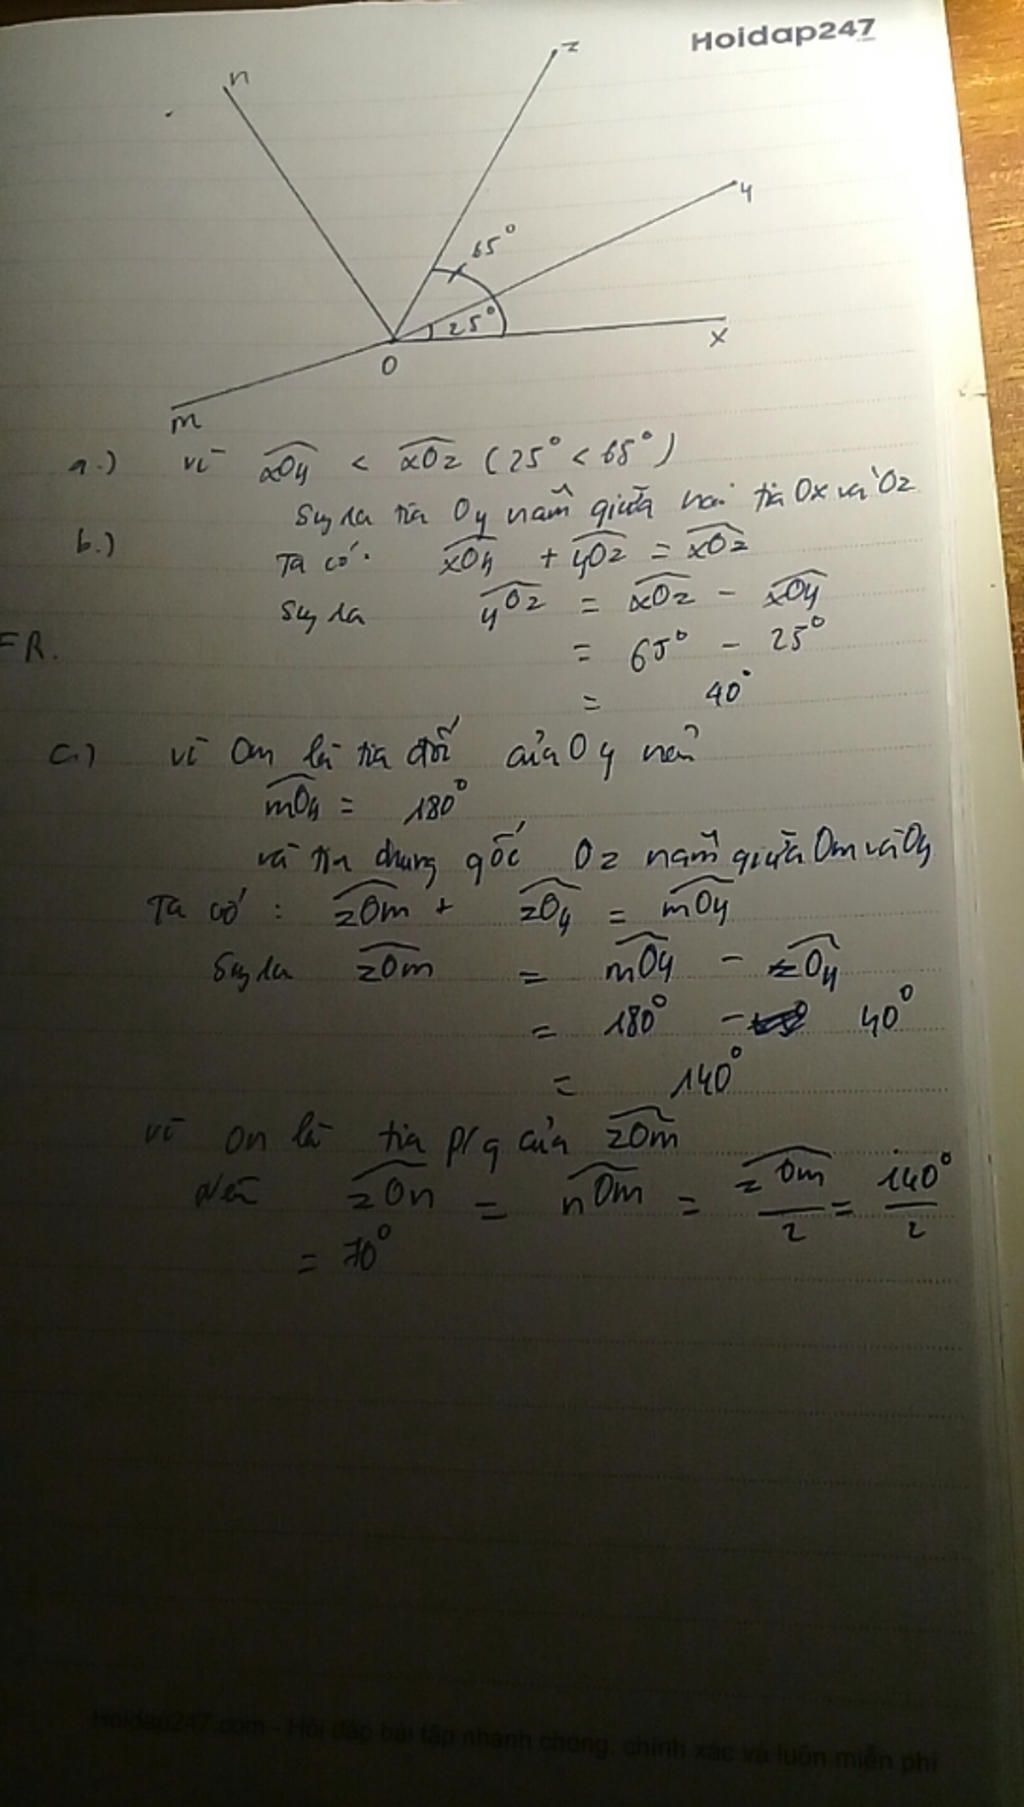 Hoidap247
n
z
y
65°
25°
x
O
m
a.) vì xOy < xOz (25° < 65°)
Suy ra tia Oy nằm giữa hai tia Ox và Oz
b.) Ta có: xOy + yOz = xOz
Suy ra yOz = xOz - xOy
FR.
= 65° - 25°
= 40°
c.) vì Om là tia đối của Oy nên
mOy = 180°
và tia chung gốc Oz nằm giữa Om và Oy
Ta có: zOm + zOy = mOy
Suy ra zOm = mOy - zOy
= 180° - 40°
= 140°
vì On là tia p/g của zOm
Nên zOn = nOm = zOm/2 = 140°/2
= 70°
Hoidap247.com - Hỏi đáp bài tập nhanh chóng, chính xác và luôn miễn phí